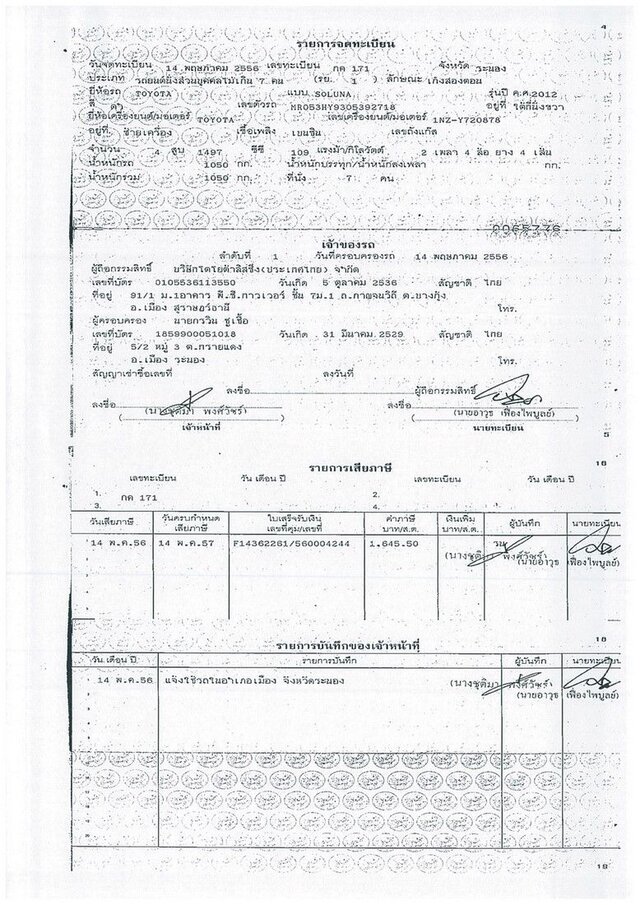 4
รายการจดทะเบียน
วันจดทะเบียน 14 พฤษภาคม 2556 เลขทะเบียน กค 171 จังหวัด ระนอง
ประเภท รถยนต์นั่งส่วนบุคคลไม่เกิน 7 คน (รย. 1 ) ลักษณะ เก๋งสองตอน
ยี่ห้อรถ TOYOTA แบบ SOLUNA รุ่นปี ค.ศ.2012
สี ดำ เลขตัวรถ MR053HY9305392718 อยู่ที่ ใต้ที่นั่งขวา
ยี่ห้อเครื่องยนต์/มอเตอร์ TOYOTA เลขเครื่องยนต์/มอเตอร์ 1NZ-Y720878
อยู่ที่ ซ้ายเครื่อง เชื้อเพลิง เบนซิน เลขถังแก๊ส
จำนวน 4 สูบ 1497 ซีซี 109 แรงม้า/กิโลวัตต์ 2 เพลา 4 ล้อ ยาง 4 เส้น
น้ำหนักรถ 1050 กก. น้ำหนักบรรทุก/น้ำหนักลงเพลา กก.
น้ำหนักรวม 1050 กก. ที่นั่ง 7 คน
0065776
เจ้าของรถ
ลำดับที่ 1 วันที่ครอบครองรถ 14 พฤษภาคม 2556
ผู้ถือกรรมสิทธิ์ บริษัทโตโยต้าลีสซิ่ง(ประเทศไทย) จำกัด
เลขที่บัตร 0105536113550 วันเกิด 5 ตุลาคม 2536 สัญชาติ ไทย
ที่อยู่ 91/1 ม.1อาคาร พี.ซี.ทาวเวอร์ ชั้น 7ม.1 ถ.กาญจนวิถี ต.บางกุ้ง
อ.เมือง สุราษฎร์ธานี โทร.
ผู้ครอบครอง นายกวิน ชูเชื้อ
เลขที่บัตร 1859900051018 วันเกิด 31 มีนาคม 2529 สัญชาติ ไทย
ที่อยู่ 5/2 หมู่ 3 ต.ทรายแดง
อ.เมือง ระนอง โทร.
สัญญาเช่าซื้อเลขที่ ลงวันที่
ลงชื่อ ผู้ถือกรรมสิทธิ์
ลงชื่อ ลงชื่อ
(นางชุติมา พงศ์วัชร์) (นายอาวุธ เฟื่องไพบูลย์)
เจ้าหน้าที่ นายทะเบียน
5
รายการเสียภาษี 16
เลขทะเบียน วัน เดือน ปี เลขทะเบียน วัน เดือน ปี
1. กค 171 2.
3. 4.
วันเสียภาษี วันครบกำหนดเสียภาษี ใบเสร็จรับเงิน เลขที่คุม/เลขที่ ค่าภาษี บาท/ส.ต. เงินเพิ่ม บาท/ส.ต. ผู้บันทึก นายทะเบียน
14 พ.ค.56 14 พ.ค.57 F14362261/560004244 1,645.50
(นางชุติมา พงศ์วัชร์)
(นายอาวุธ เฟื่องไพบูลย์)
รายการบันทึกของเจ้าหน้าที่ 18
วัน เดือน ปี รายการบันทึก ผู้บันทึก นายทะเบียน
14 พ.ค.56 แจ้งใช้รถในอำเภอเมือง จังหวัดระนอง (นางชุติมา พงศ์วัชร์)
(นายอาวุธ เฟื่องไพบูลย์)
19